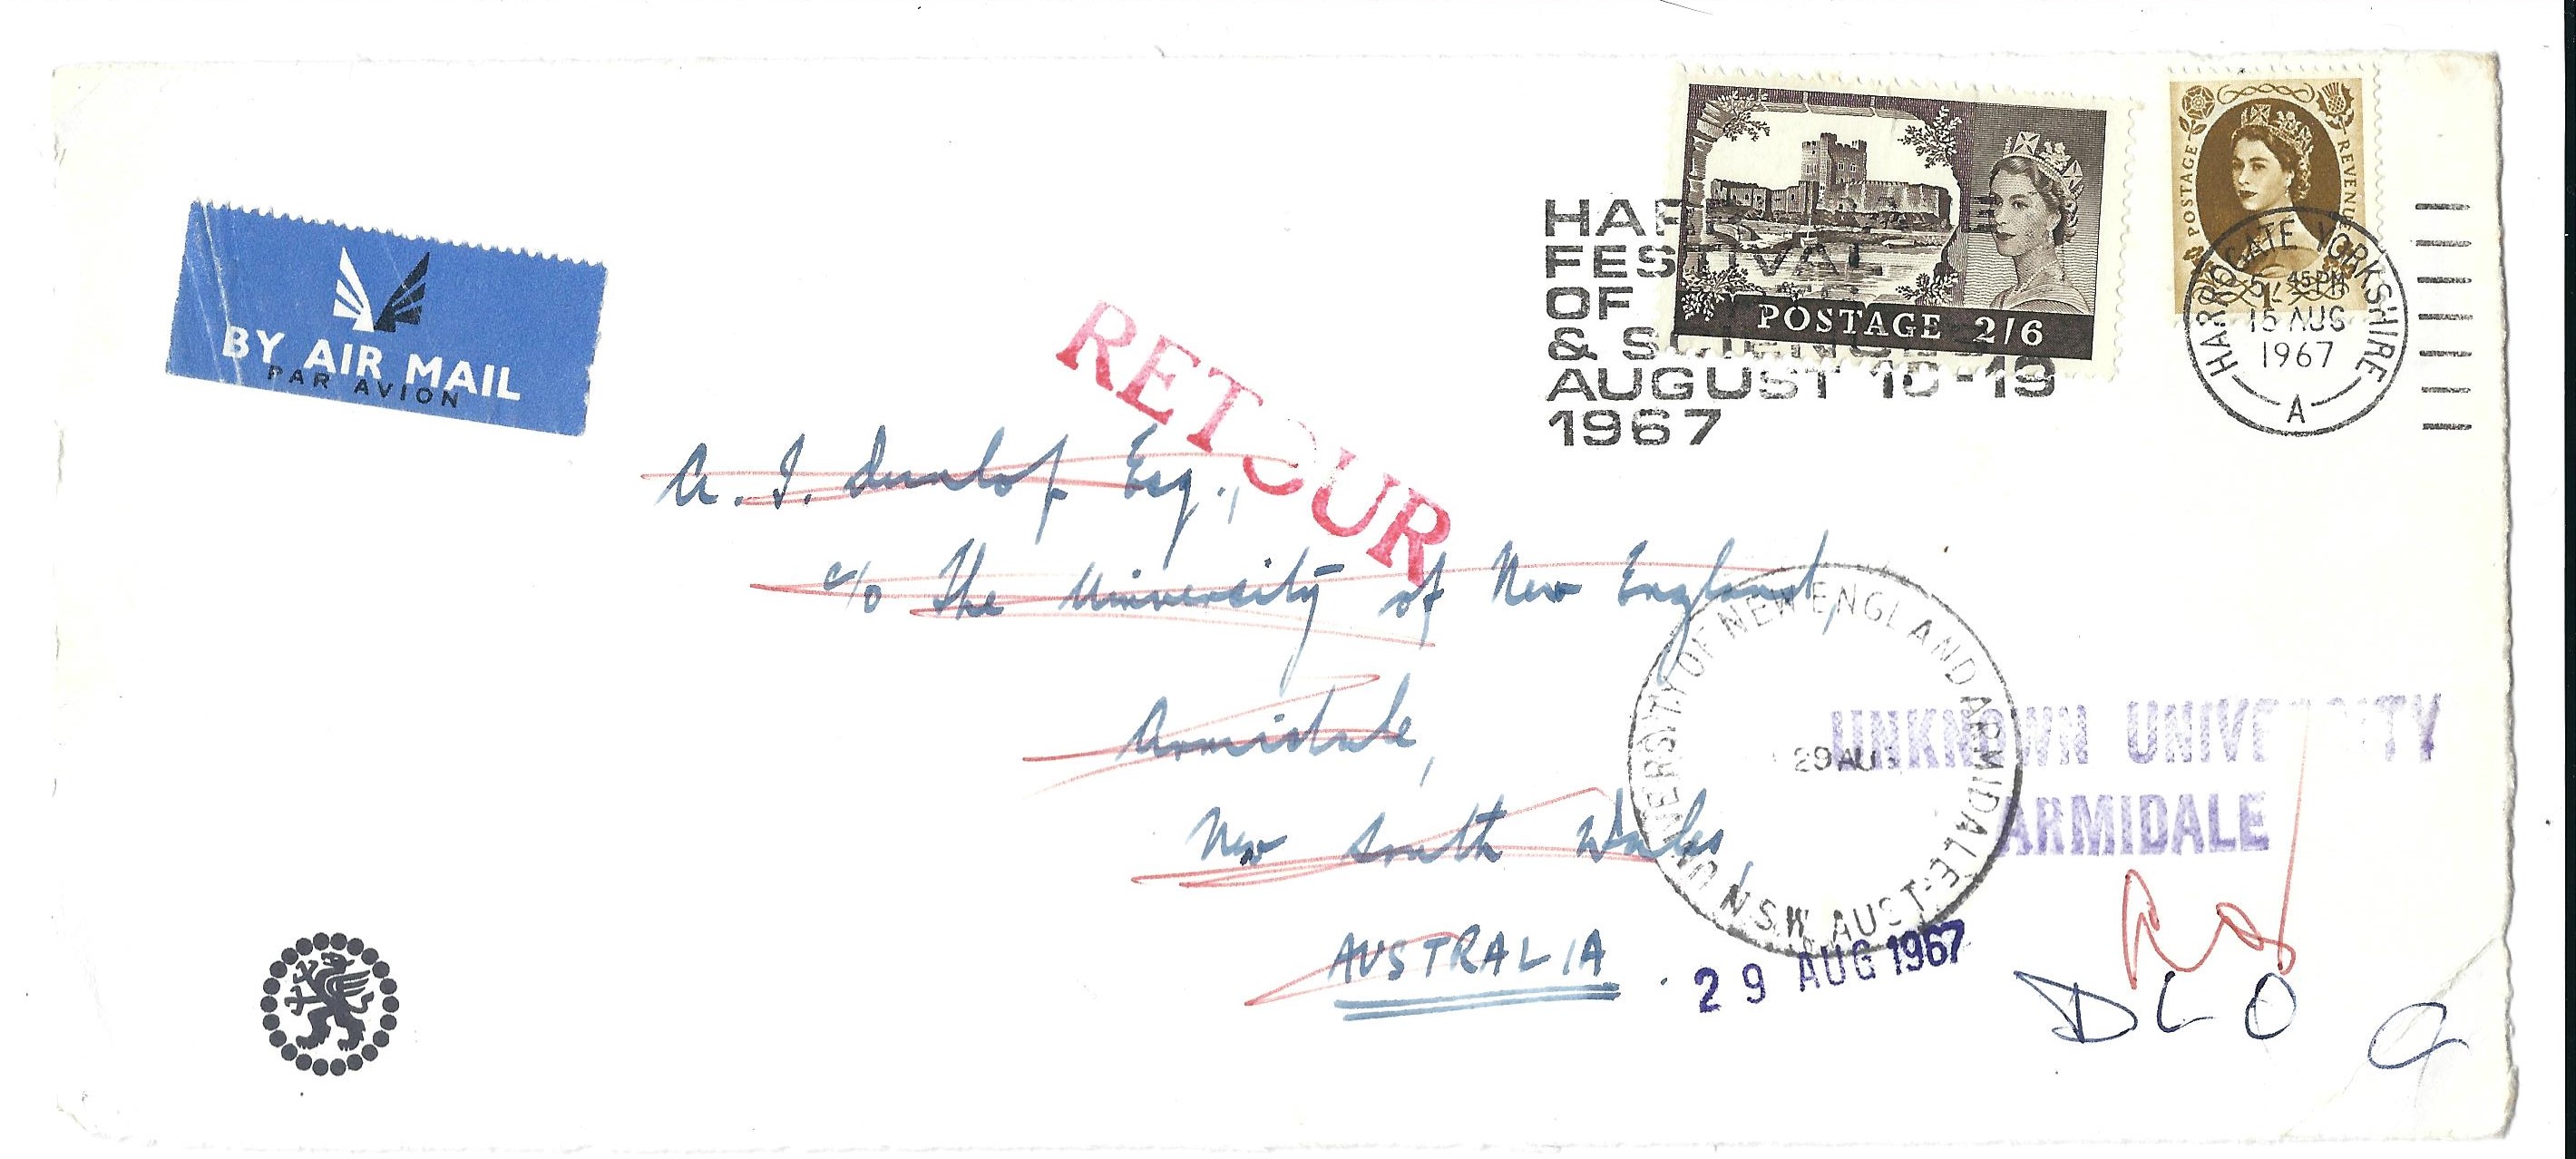 BY AIR MAIL
PAR AVION
POSTAGE 2/6
POSTAGE REVENUE
FESTIVAL
OF
&
AUGUST 10-19
1967
HARROGATE YORKSHIRE
45 PM
15 AUG
1967
A
RETOUR
A. I. Dunlop Esq.,
c/o The University of New England,
Armidale,
New South Wales,
AUSTRALIA
UNIVERSITY OF NEW ENGLAND ARMIDALE
N.S.W. AUST.
29 AUG
UNKNOWN UNIVERSITY
ARMIDALE
29 AUG 1967
DLO